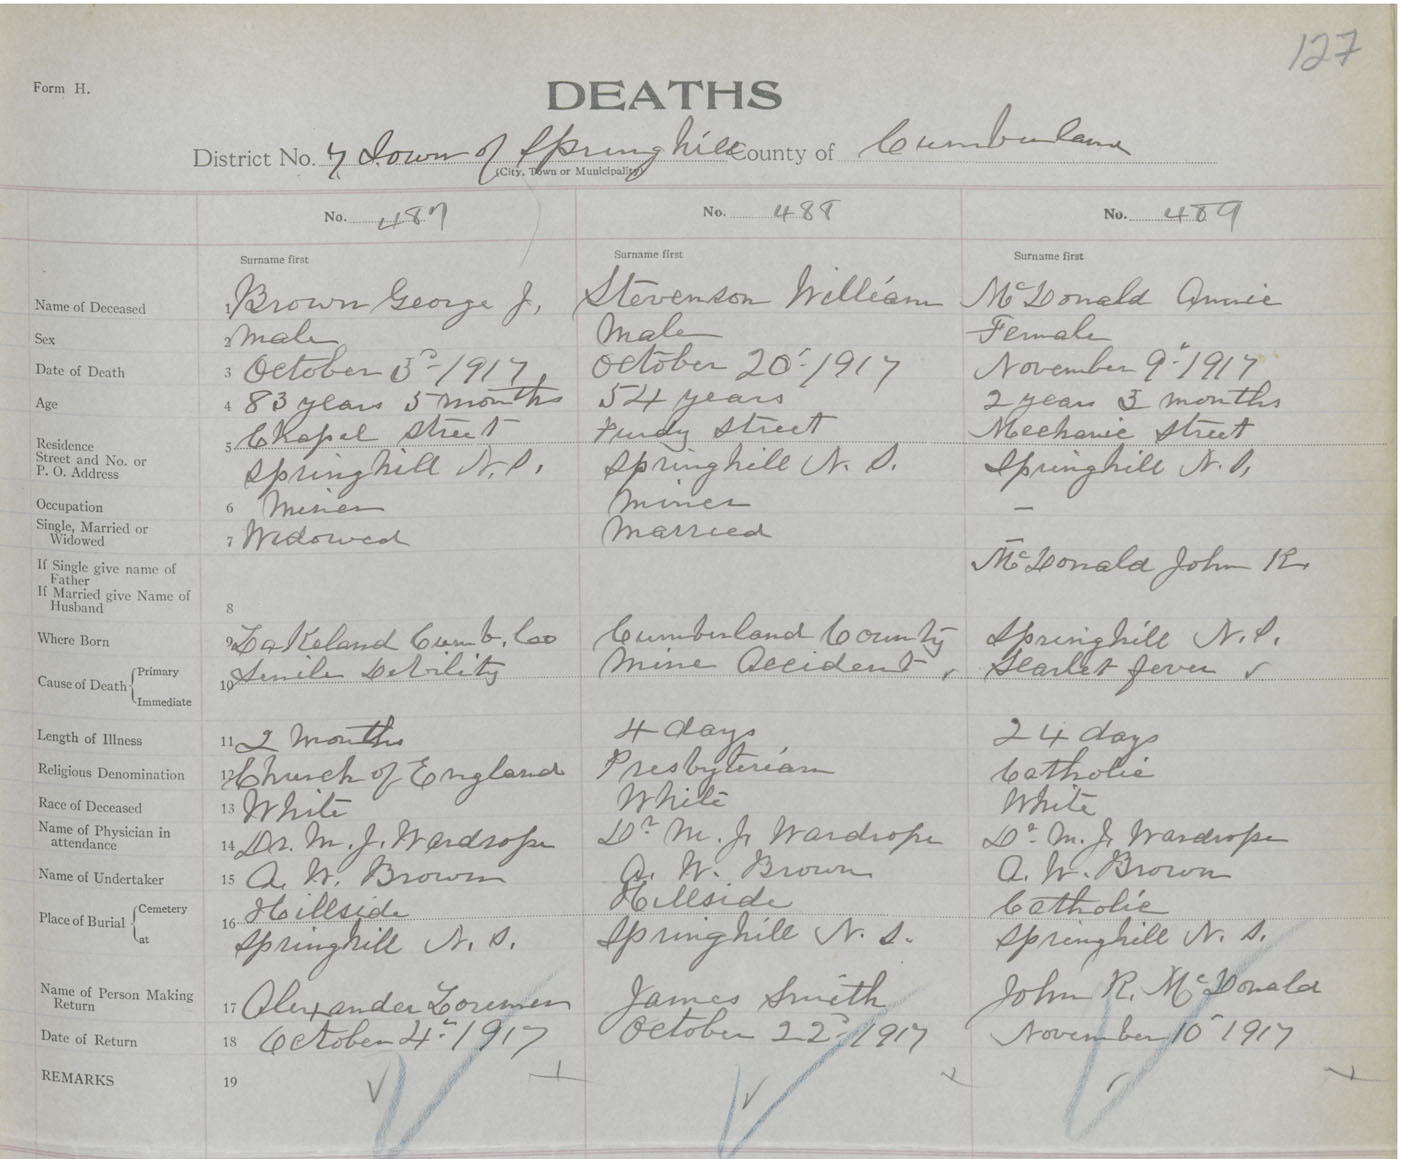 127
Form H.
DEATHS
District No. 7 Town of Springhill County of Cumberland
(City, Town or Municipality)
No. 487 No. 488 No. 489
Surname first Surname first Surname first
Name of Deceased 1 Brown George J. Stevenson William McDonald Annie
Sex 2 Male Male Female
Date of Death 3 October 3rd 1917 October 20" 1917 November 9" 1917
Age 4 83 years 5 months 54 years 2 years 3 months
Residence 5 Chapel Street Purdy Street Mechanic Street
Street and No. or
P. O. Address Springhill N.S. Springhill N. S. Springhill N. S.
Occupation 6 Miner Miner —
Single, Married or
Widowed 7 Widowed Married
If Single give name of McDonald John R.
Father
If Married give Name of
Husband 8
Where Born 9 Cumb. Co Cumberland County Springhill N. S.
Cause of Death Primary 10 Senile Debility Mine Accident Scarlet fever
Immediate
Length of Illness 11 2 Months 4 days 24 days
Religious Denomination 12 Church of England Presbyterian Catholic
Race of Deceased 13 White White White
Name of Physician in
attendance 14 Dr. M. J. Wardrope Dr M. J. Wardrope Dr M. J. Wardrope
Name of Undertaker 15 A. W. Brown A. W. Brown A. W. Brown
Place of Burial Cemetery 16 Hillside Hillside Catholic
at Springhill N. S. Springhill N. S. Springhill N. S.
Name of Person Making
Return 17 Alexander James Smith John R. McDonald
Date of Return 18 October 4" 1917 October 22" 1917 November 10" 1917
REMARKS 19